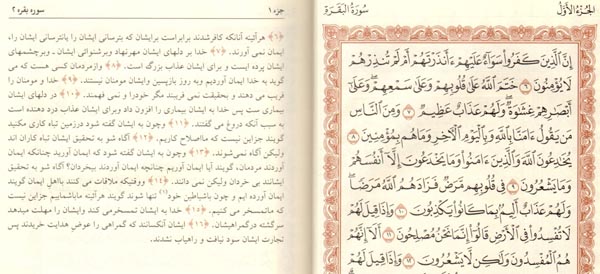 الجُزءُ الأَوَّل
سُورَةُ البَقَرَةِ
إِنَّ ٱلَّذِينَ كَفَرُوا۟ سَوَآءٌ عَلَيْهِمْ ءَأَنذَرْتَهُمْ أَمْ لَمْ تُنذِرْهُمْ
لَا يُؤْمِنُونَ ٦ خَتَمَ ٱللَّهُ عَلَىٰ قُلُوبِهِمْ وَعَلَىٰ سَمْعِهِمْ ۖ وَعَلَىٰٓ
أَبْصَٰرِهِمْ غِشَٰوَةٌ ۖ وَلَهُمْ عَذَابٌ عَظِيمٌ ٧ وَمِنَ ٱلنَّاسِ
مَن يَقُولُ ءَامَنَّا بِٱللَّهِ وَبِٱلْيَوْمِ ٱلْءَاخِرِ وَمَا هُم بِمُؤْمِنِينَ ٨
يُخَٰدِعُونَ ٱللَّهَ وَٱلَّذِينَ ءَامَنُوا۟ وَمَا يَخْدَعُونَ إِلَّآ أَنفُسَهُمْ
وَمَا يَشْعُرُونَ ٩ فِى قُلُوبِهِم مَّرَضٌ فَزَادَهُمُ ٱللَّهُ مَرَضًا ۖ
وَلَهُمْ عَذَابٌ أَلِيمٌۢ بِمَا كَانُوا۟ يَكْذِبُونَ ١٠ وَإِذَا قِيلَ لَهُمْ
لَا تُفْسِدُوا۟ فِى ٱلْأَرْضِ قَالُوٓا۟ إِنَّمَا نَحْنُ مُصْلِحُونَ ١١ أَلَآ إِنَّهُمْ
هُمُ ٱلْمُفْسِدُونَ وَلَٰكِن لَّا يَشْعُرُونَ ١٢ وَإِذَا قِيلَ لَهُمْ
جزء ۱
سوره بقره ۲
﴿۶﴾ هرآئینه آنانکه کافرشدند برابراست برایشان که بترسانی ایشان را یانترسانی ایشان را،
ایمان نمی آورند. ﴿۷﴾ خدا بر دلهای ایشان مهرنهاد وبرشنوائی ایشان ، وبرچشمهای
ایشان پرده است و برای ایشان عذاب بزرگ است. ﴿۸﴾ وازمردمان کسی هست که می
گوید به خدا ایمان آوردیم وبه روز بازپسین وایشان مومنان نیستند. ﴿۹﴾ خدا و مومنان را
فریب می دهند و بحقیقت نمی فریبند مگر خودرا و نمی فهمند. ﴿۱۰﴾ در دلهای ایشان
بیماری ست پس خدا به ایشان بیماری را افزون داد وبرای ایشان عذاب درد دهنده است
به سبب آنکه دروغ می گفتند. ﴿۱۱﴾ وچون به ایشان گفته شود درزمین تباه کاری مکنید
گویند جزاین نیست که مااصلاح کاریم. ﴿۱۲﴾ آگاه شو به تحقیق ایشان تباه کاران اند
ولیکن آگاه نمی‌شوند. ﴿۱۳﴾ وچون به ایشان گفته شود که ایمان آورید چنانکه ایمان
آوردند مردمان، گویند آیا ایمان آوریم چنانچه ایمان آوردند بیخردان؟ آگاه شو به تحقیق
ایشانند بی خردان ولیکن نمی دانند. ﴿۱۴﴾ ووقتیکه ملاقات می کنند بااهل ایمان گویند
ایمان آورده ایم و چون باشیاطین خود(۱) تنها شوند گویند هرآئینه ماباشماییم جزاین نیست
که ماتمسخر می کنیم. ﴿۱۵﴾ خدا به ایشان تمسخرمی کند وایشان را مهلت میدهد
سرگشته درگمراهیشان. ﴿۱۶﴾ ایشان آنکسانند که گمراهی را عوض هدایت خریدند پس
تجارت ایشان سود نیافت و راهیاب نشدند.